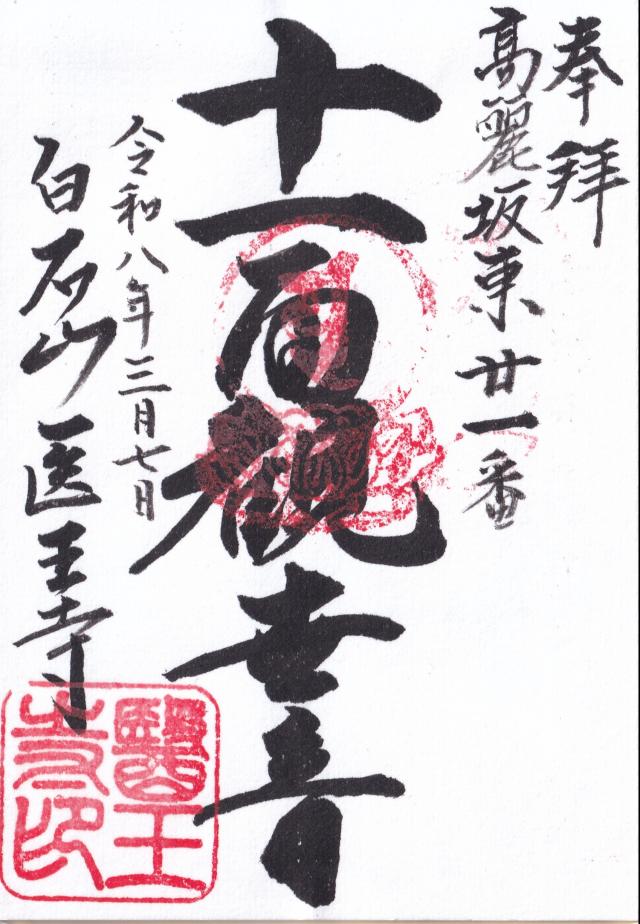 奉拝
高麗坂東廿一番
十一面観世音
令和八年三月七日
白石山医王寺
醫王
寺印